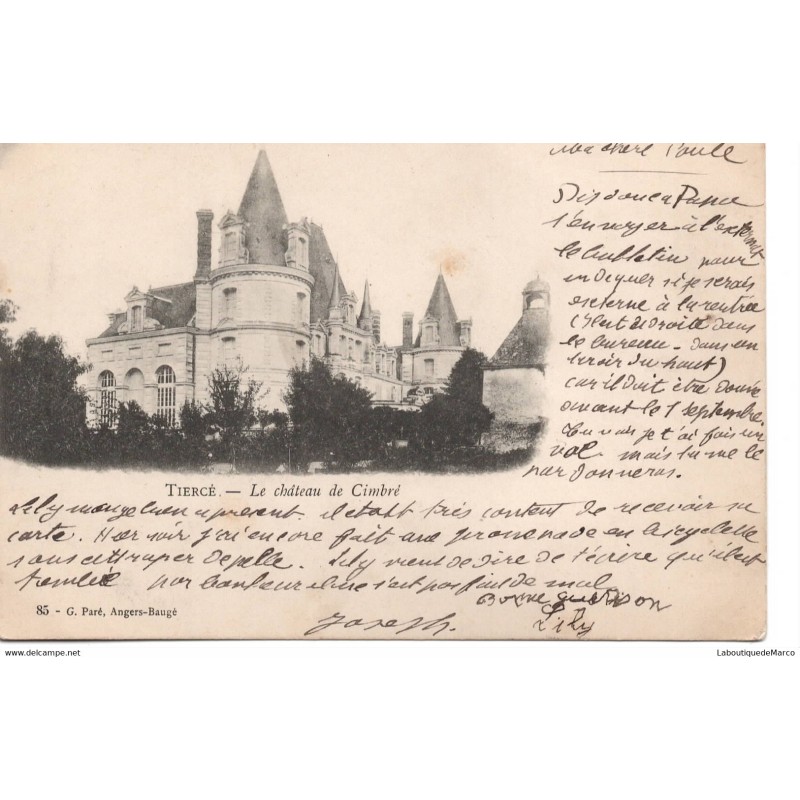 Ma chère Poule
Dis donc à Papa
d'envoyer à l'externat
le bulletin pour
indiquer si je serais
externe à la rentrée
(Il est à droite dans
le bureau. dans un
tiroir du haut)
car il doit être donné
avant le 1 septembre.
Tu vois je t'ai fais un
vol mais tu me le
pardonneras.
TIERCÉ. — Le château de Cimbré
Lily mange bien à présent. il était très content de recevoir sa
carte. Hier soir j'ai encore fait une promenade en bicyclette
sans attraper de pelle. Lily vient de dire de t'écrire qu'il est
tombé par bonheur il ne s'est pas fait de mal
Bonne guérison
Lily
Joseph.
85 - G. Paré, Angers-Baugé
www.delcampe.net
LaboutiquedeMarco